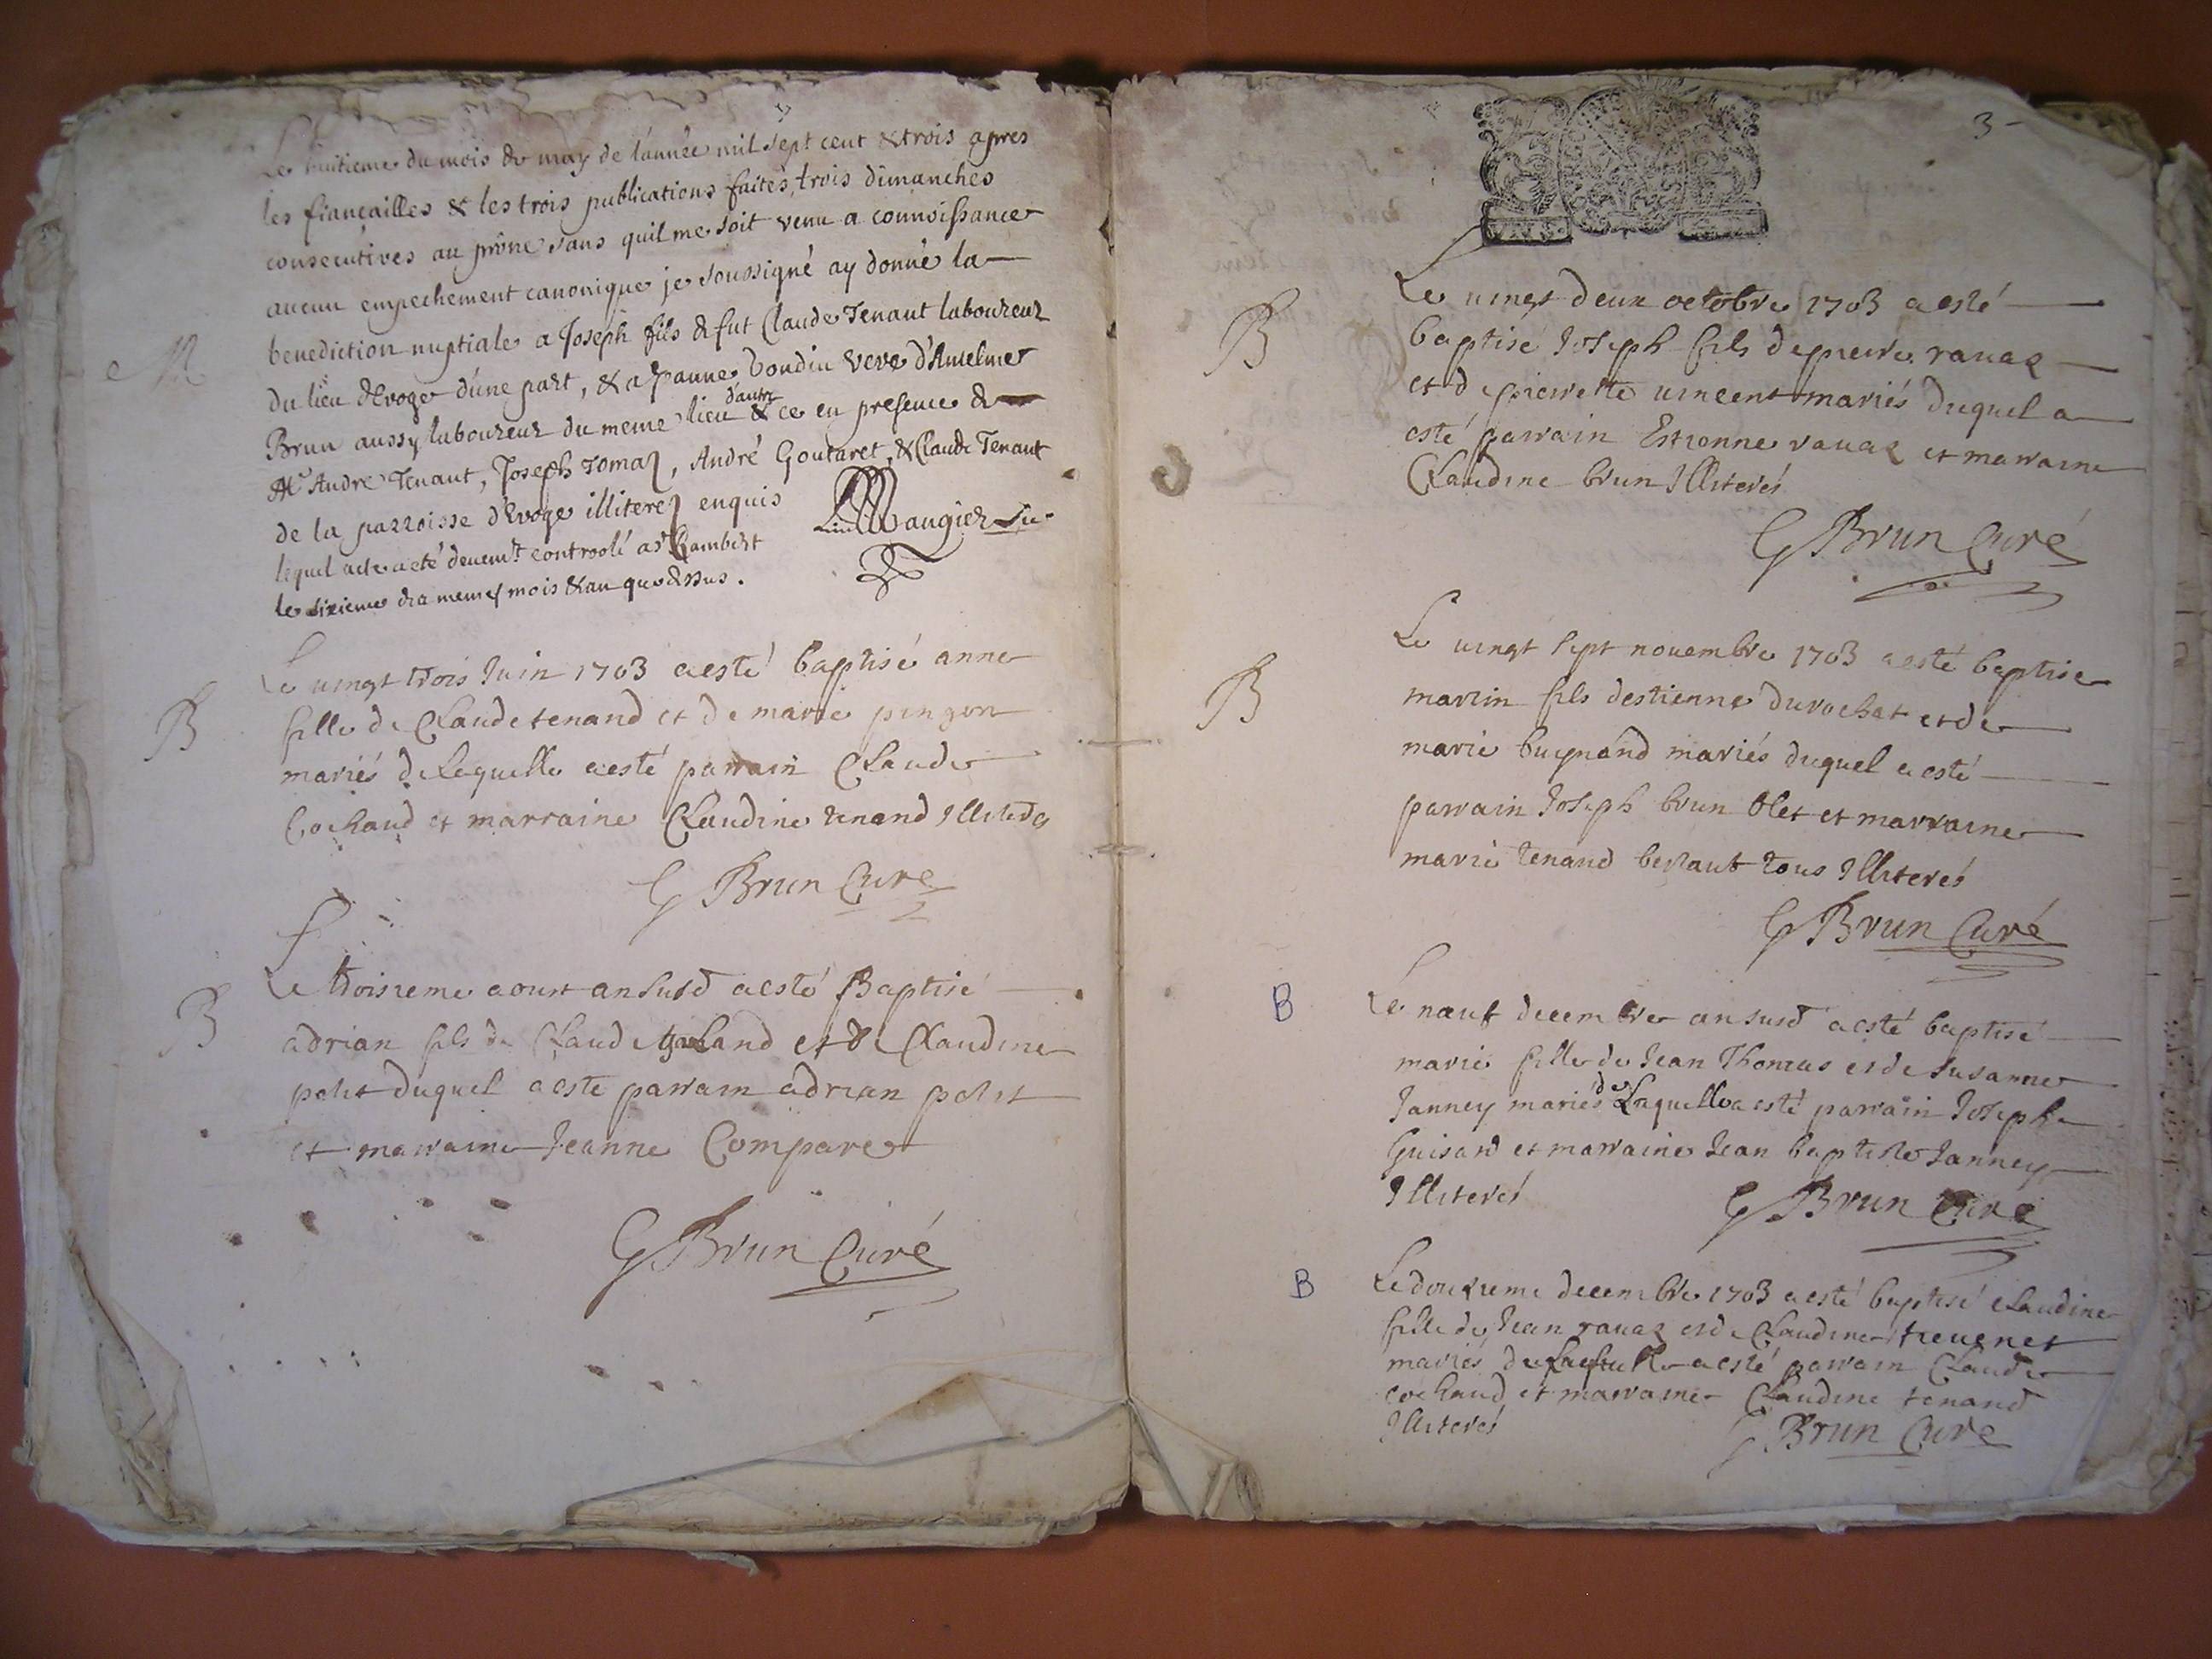 Le huitieme du mois de may de l'année mil sept cent & trois apres
les fiançailles & les trois publications faites, trois dimanches
consecutives au prône sans quil me soit venu a connoissance
aucun empechement canonique je soussigné ay donné la
benediction nuptiale a Joseph fils de fut Claude Tenant laboureur
du lieu d'Evoge d'une part, & a Jeanne bondin veve d'Anselme
Brun aussy laboureur du meme lieu d'autre & ce en presence de
Mr Andre Tenant, Joseph Tomaz, André Goutaret, & Claude Tenant
de la parroisse d'Evoge illiterez enquis
lequel acte a eté devemt controolé a st Rambert
le sixieme dea memes mois & an que dessus.
Maugier
M
B
Le vingt trois Juin 1703 a esté baptisé anne
fille de Claude tenand et de marie pingon
mariés de lequelle a esté parrain Claude
Cochaud et marraine Claudine tenand Illiterés
G Brun Curé
B
Le troisieme aoust an susd a esté Baptisé
adrian fils de Claude galand et de Claudine
polit duquel a esté parrain adrian polit
et marraine Jeanne Comparet
G Brun Curé
3
B
Le vingt deux octobre 1703 a esté
baptisé Joseph fils de pierre ravaz
et de pierrette vincent mariés duquel a
esté parrain Estienne ravaz et marraine
Claudine brun Illiterés
G Brun Curé
B
Le vingt sept novembre 1703 a esté baptisé
martin fils destienne durochat et de
marie buynand mariés duquel a esté
parrain Joseph brun blet et marraine
marie tenand bertaut tous Illiterés
G Brun Curé
B
Le neuf decembre an susd a esté baptisé
marie fille de Jean Thomas et de Susanne
Janney mariés de Laquelle a esté parrain Joseph
Guisard et marraine Jean baptiste Janney
Illiterés
G Brun Curé
B
Le douzieme decembre 1703 a esté baptisé Claudine
fille de Jean ravaz et de Claudine trevenet
mariés de Laquelle a esté parrain Claude
cochaud et marraine Claudine tenand
Illiterés
G Brun Curé